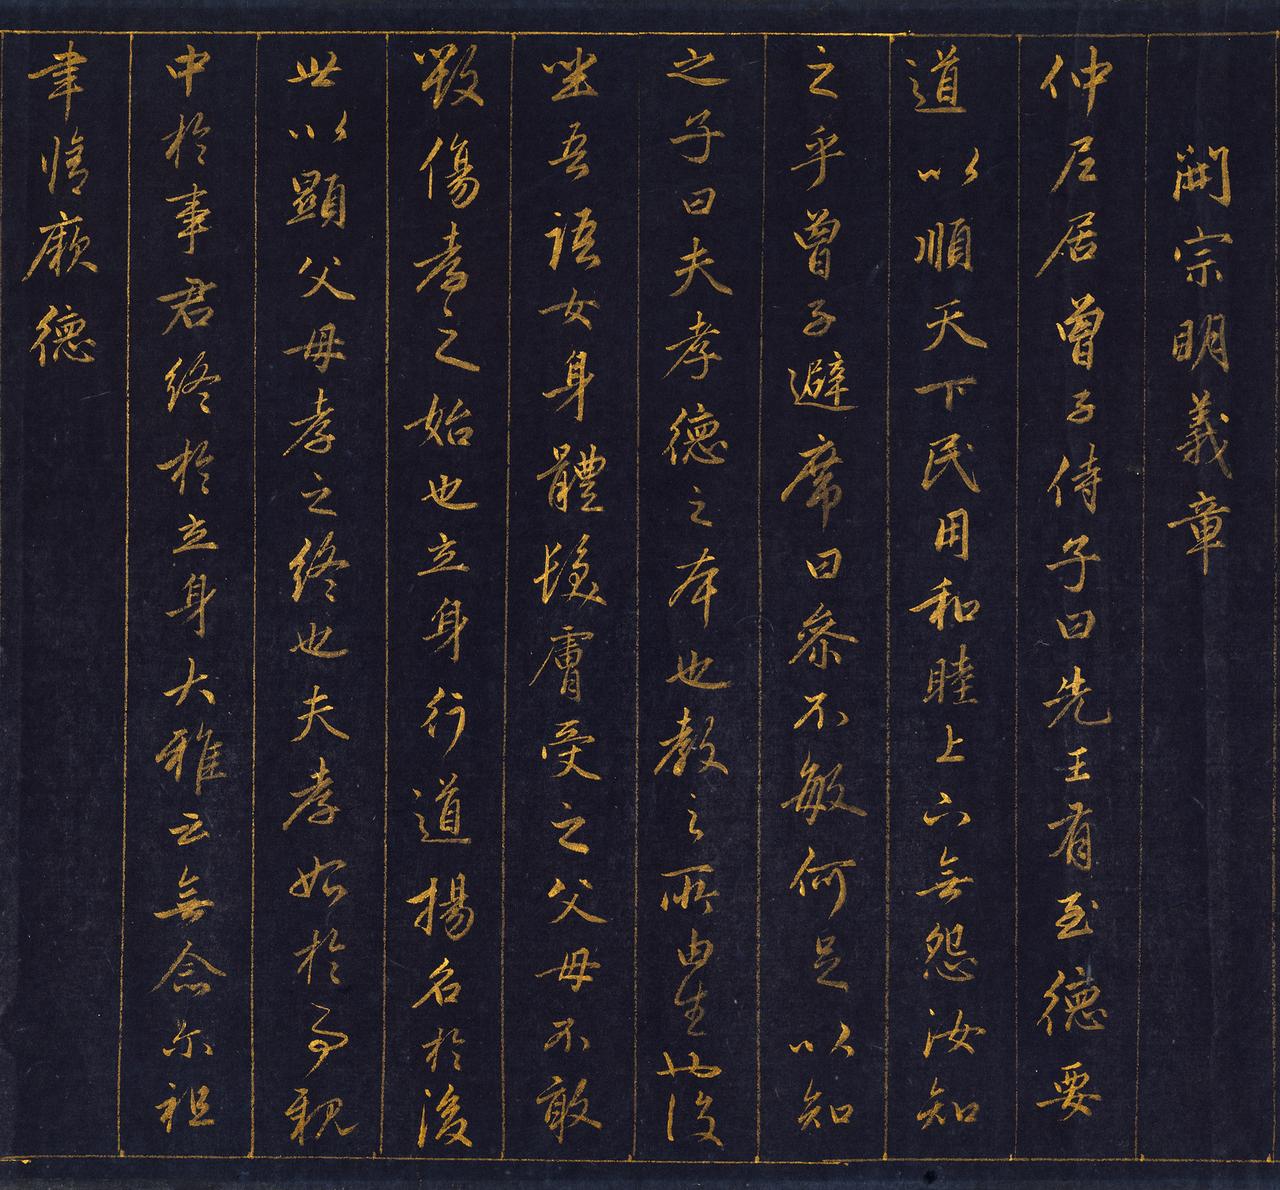 開宗明義章
仲尼居曾子侍子曰先王有至德要
道以順天下民用和睦上下無怨汝知
之乎曾子避席曰參不敏何足以知
之子曰夫孝德之本也教之所由生也復
坐吾語女身體髮膚受之父母不敢
毀傷孝之始也立身行道揚名於後
世以顯父母孝之終也夫孝始於事親
中於事君終於立身大雅云無念尔祖
聿脩厥德